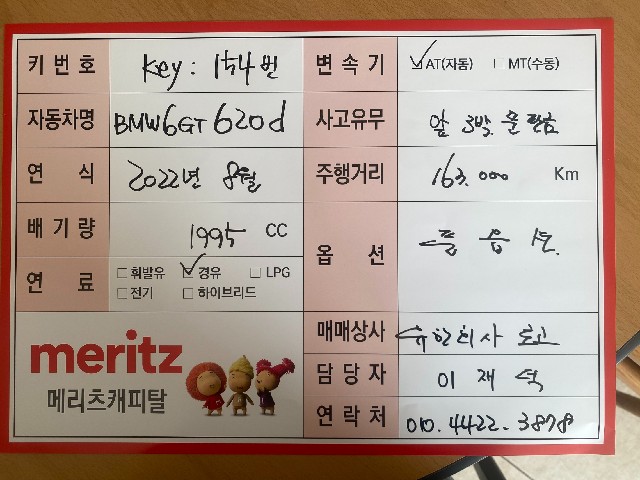 키번호 Key : 154번
변속기 ☑AT(자동) ㅣ MT(수동)
자동차명 BMW6GT 620d
사고유무 앞 3박. 문 판금
연식 2022년 8월
주행거리 163.000 Km
배기량 1995 CC
옵션 풀 옵션.
연료 □휘발유 ☑경유 □LPG
□전기 □하이브리드
meritz
메리츠캐피탈
매매상사 유한회사
담당자 이재석
연락처 010.4422.3878